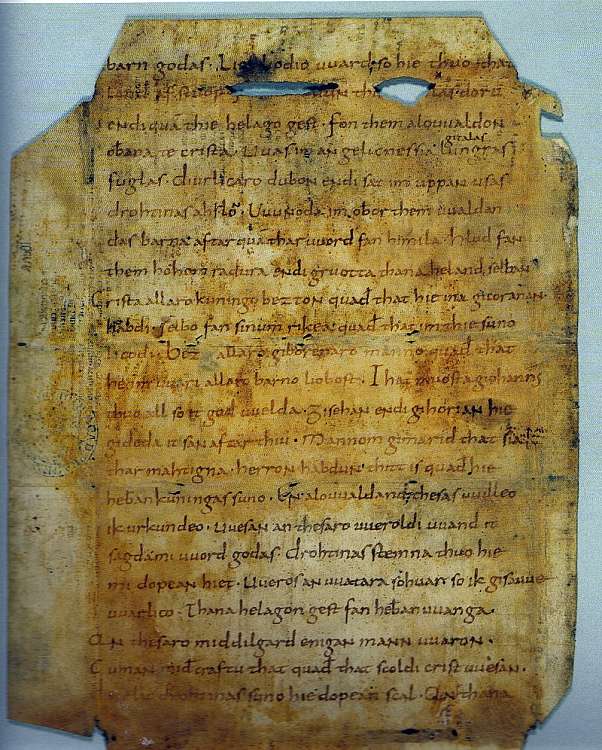 barn godas. liodio uuard so hie thuo that
endi quā thie helago gest. fon them alouualdon
gitalas
obana te crista. Uuas im an gelicnessia lungras
fuglas. diurlicaro dubon endi sat im uppan usas
drohtinas ahslō. Uuunoda im obar them uualdan
das barna aftar quā thar uuord fan himila. hlud fan
them hohon radura endi gruotta thana heland selban
Crista allaro kuningo bezton quađ that hie ina gicoranan
habdi. selbo fan sinum rikea. quađ that im thie suno
licodi bez allaro giboranaro manno quađ that
he im uuari allaro barno liobost. That muosta giohannes
thuo all so it god uuelda. gisehan endi gihorian hie
gideda it san aftar thiu. Mannom gimarid that sia
thar mahtigna. herron habdun thitt is quađ hie
heban kuningas suno. En alouualdand thesas uuilleo
ik urkundeo. Uuesan an thesaro uueroldi uuand it
sagda mi uuord godas. drohtinas stemna thuo hie
mi dopean hiet. Uueros an uuatara so huar so ik gisauue
uuarlico. Thana helagon gest fan heban uuanga.
An thesaro middilgard enigan mann uuaron.
Cuman mid craftu that quađ that scoldi crist uuesan.
drohtinas suno hie dopean scal. An thana